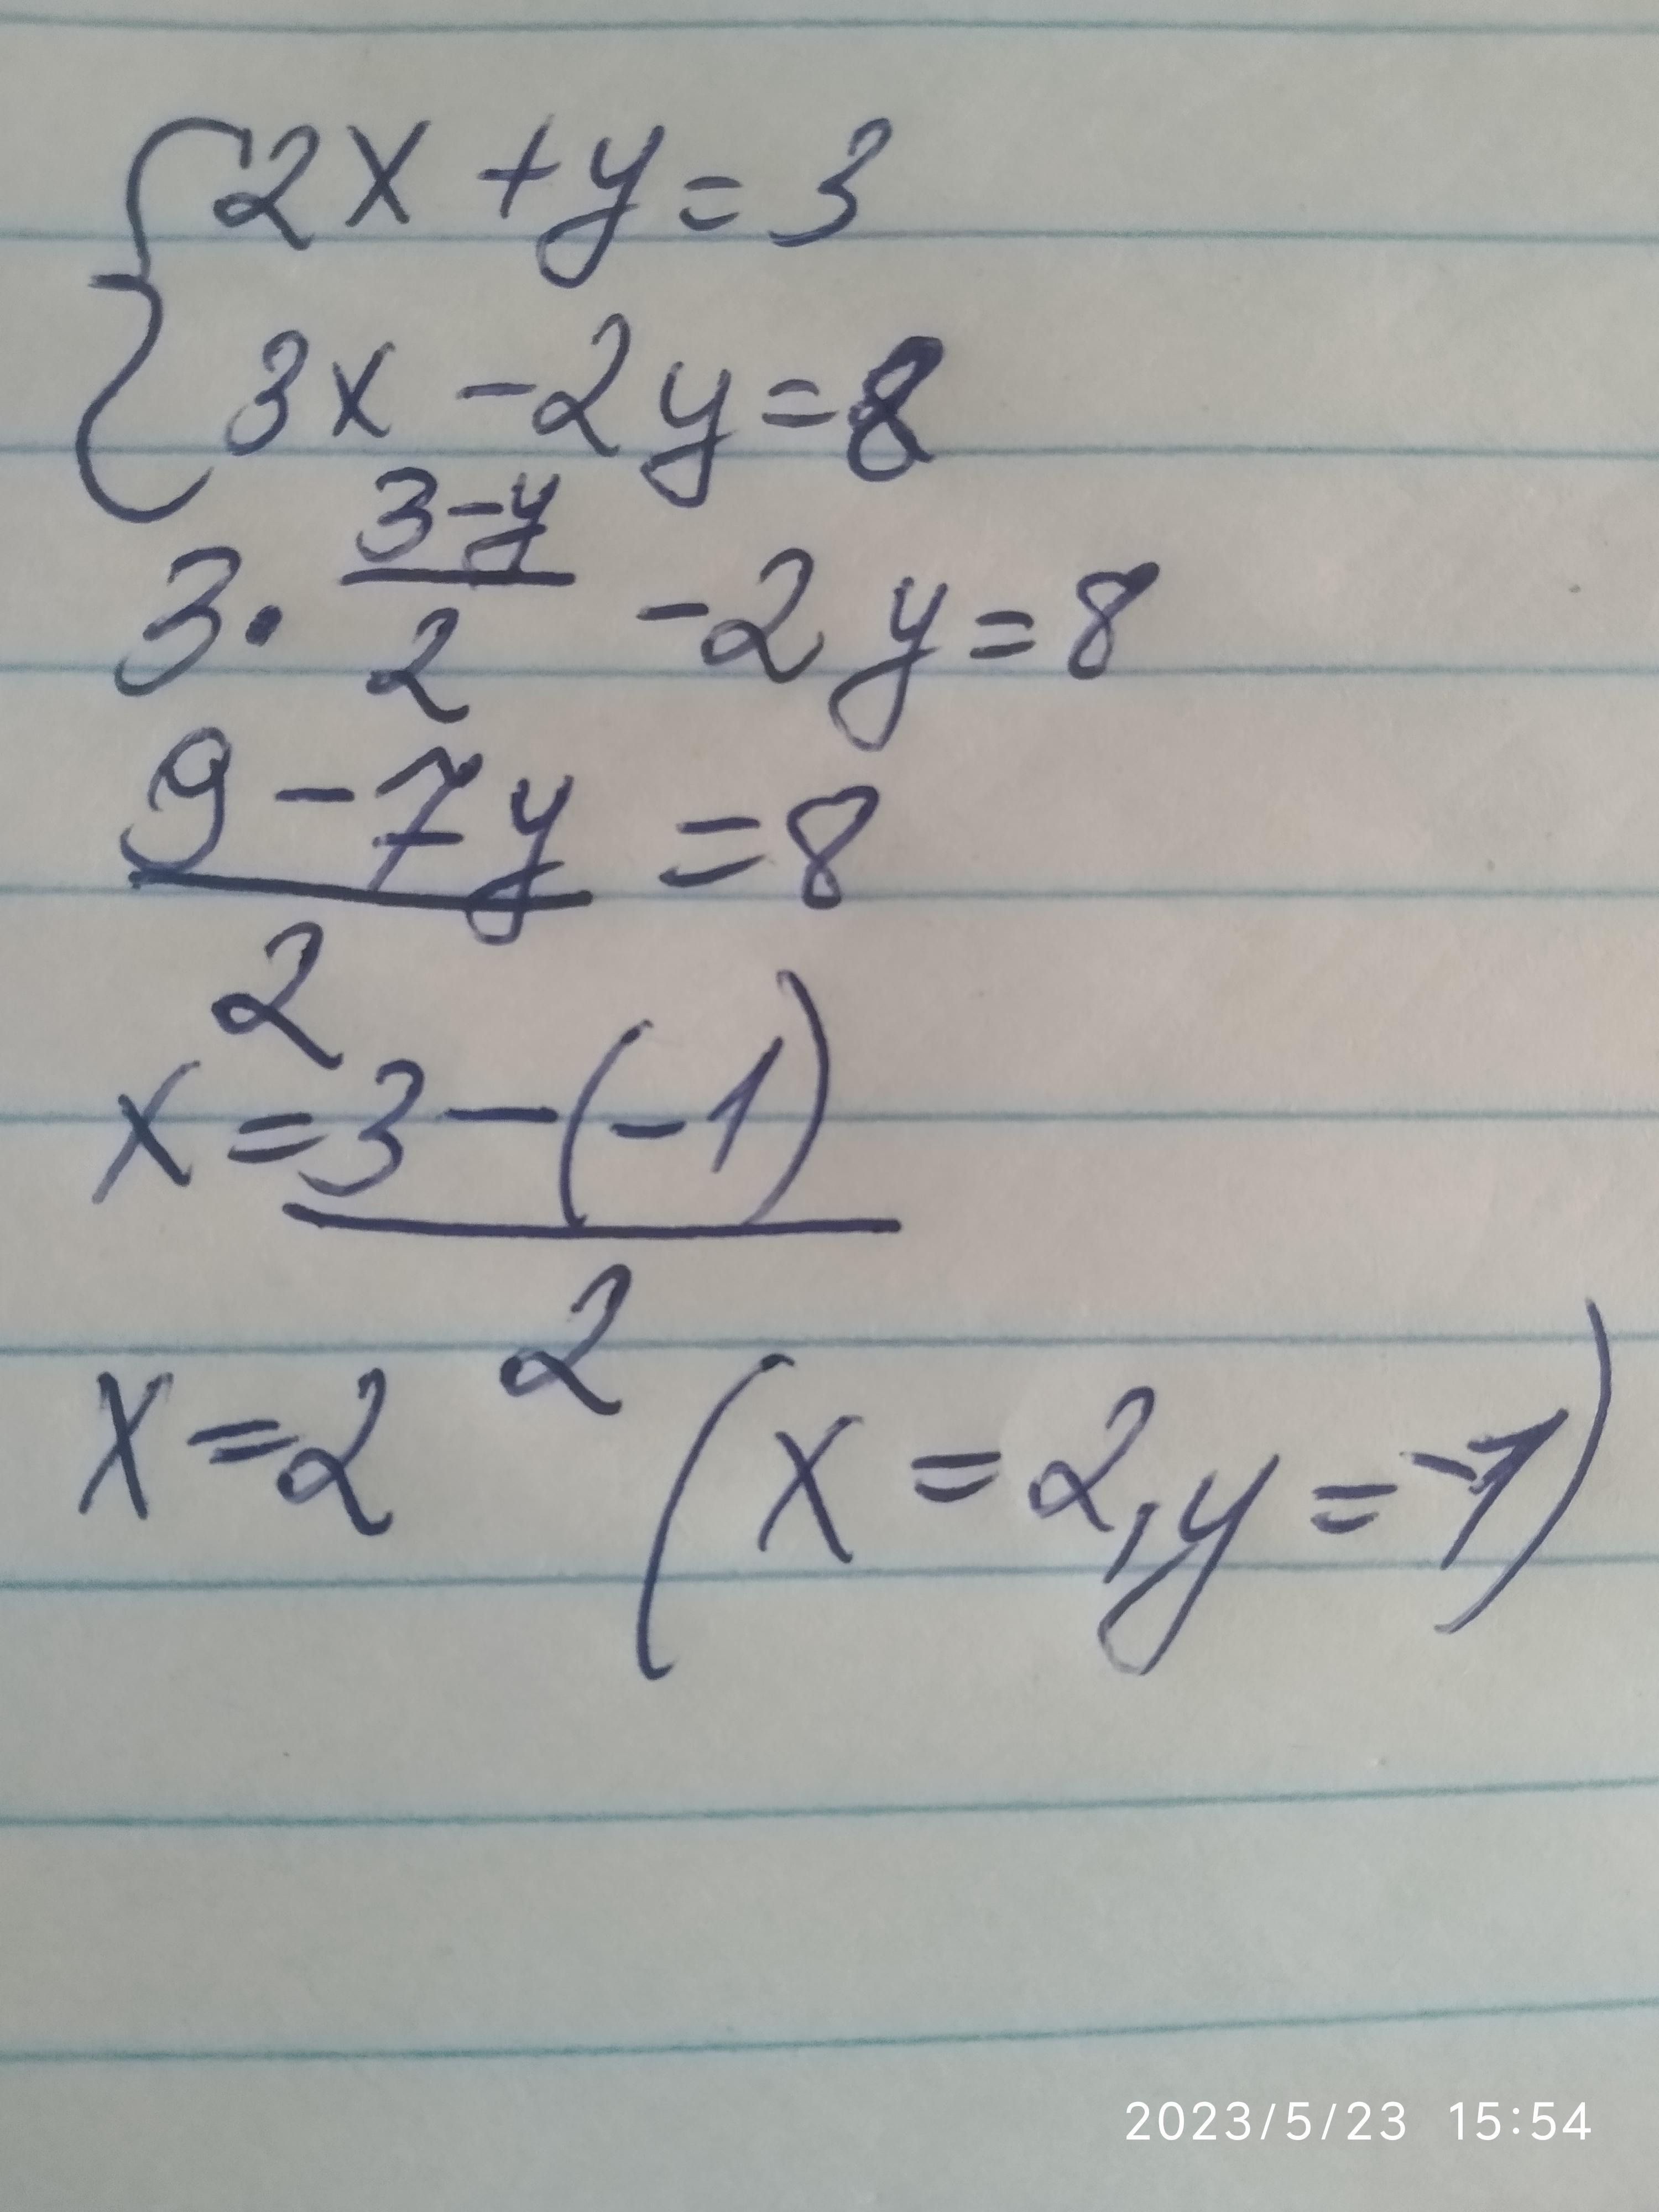 {2x + y = 3
3x - 2y = 8
3 · (3-y)/2 - 2y = 8
(9 - 7y)/2 = 8
x = (3 - (-1))/2
x = 2 (x = 2, y = -1)
2023/5/23 15:54